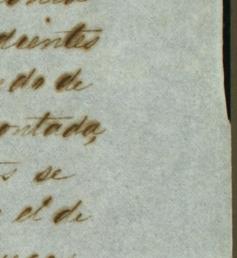 dientes
do de
ontada,
s se
el de